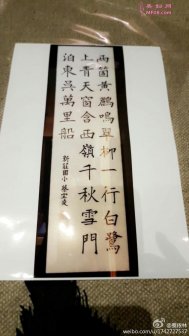 兩箇黃鸝鳴翠柳一行白鷺
上青天窗含西嶺千秋雪門
泊東吳萬里船
新莊國小
weibo.com/u/1742727517